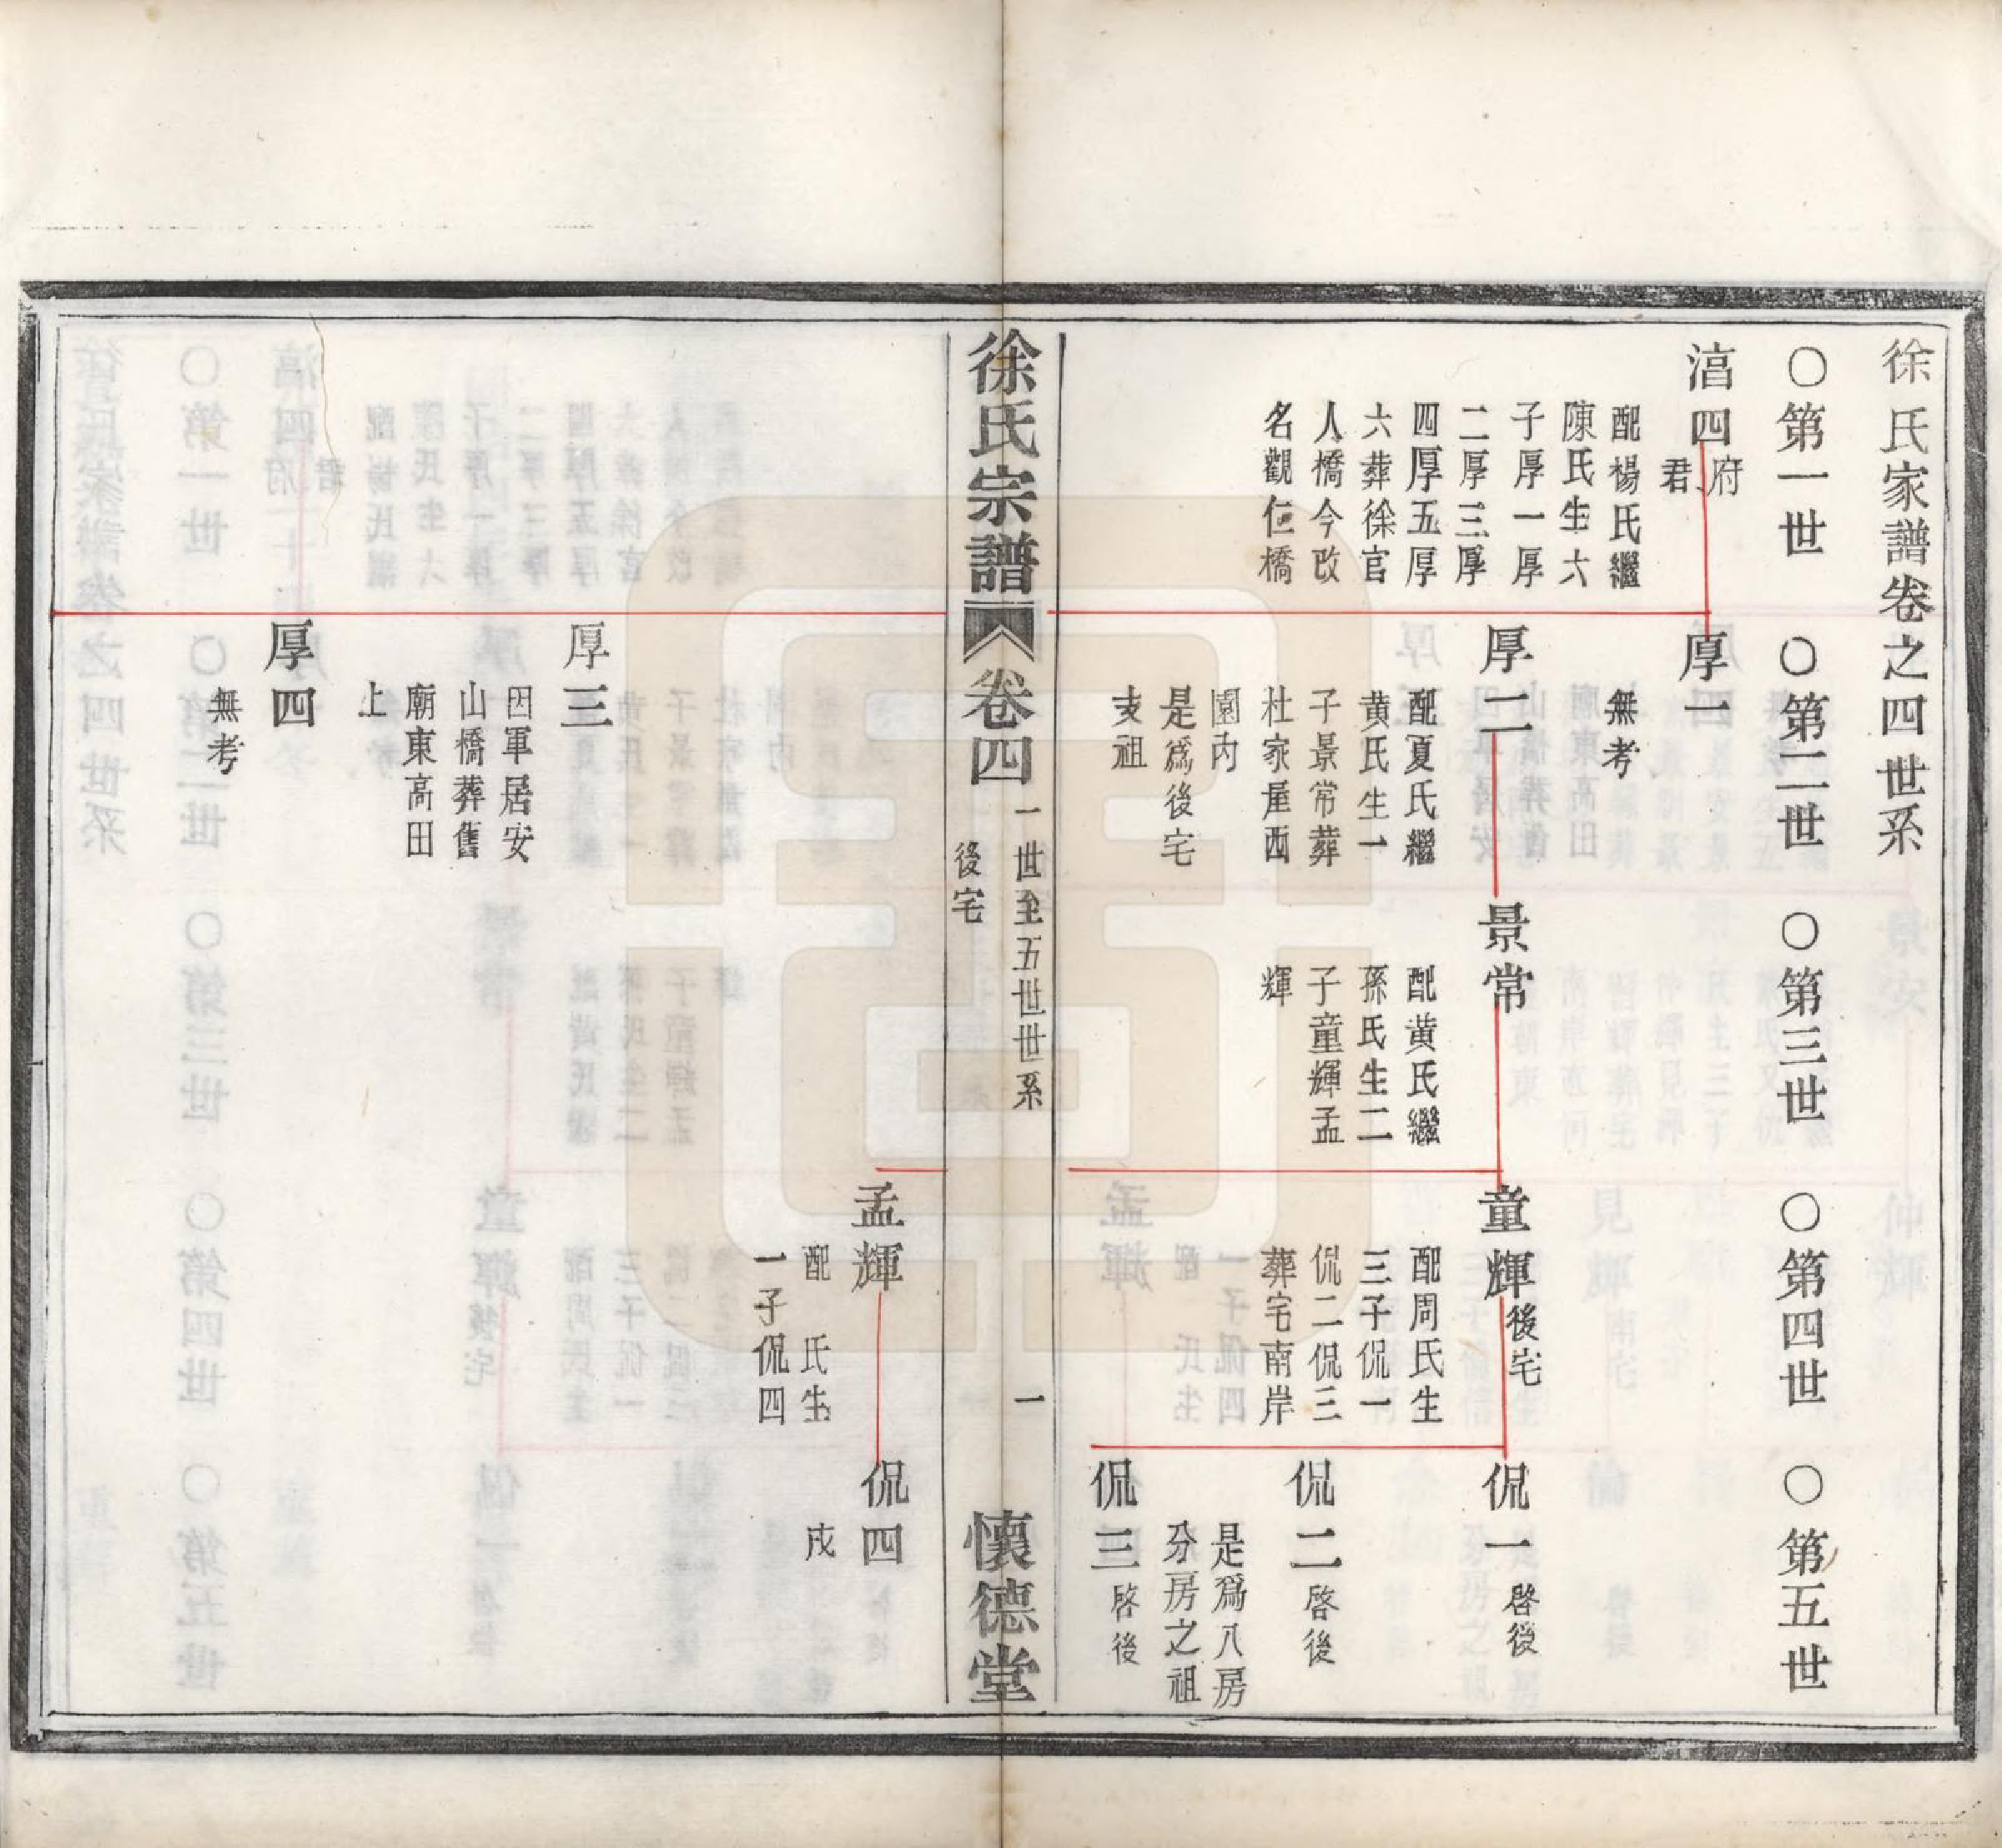 徐氏家譜卷之四世系
○第一世
○第二世
○第三世
○第四世
○第五世
湻四府君
配楊氏繼
陳氏生六
子厚一厚
二厚三厚
四厚五厚
六葬徐官
人橋今改
名觀仁橋
厚一
無考
厚二
配夏氏繼
黄氏生一
子景常葬
杜家屋西
園內
是爲後宅
支祖
景常
配黄氏繼
孫氏生二
子童輝孟
輝
童輝後宅
配周氏生
三子侃一
侃二侃三
葬宅南岸
侃一啓後
侃二啓後
是爲八房
分房之祖
侃三啓後
徐氏宗譜
卷四
一世至五世世系
後宅
一
懷德堂
孟輝
配 氏生
一子侃四
侃四
戍
厚三
因軍居安
山橋葬舊
廟東高田
上
厚四
無考